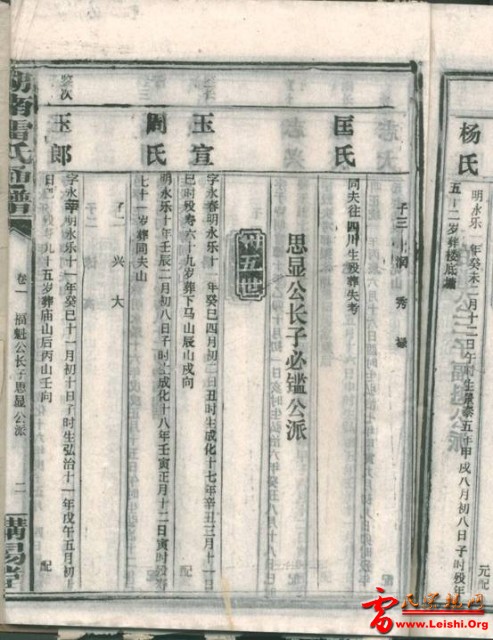 杨氏
明永乐
年癸未二月十二日午时生景泰五年甲戌八月初八日子时殁年
五十二岁葬楼底塘
元配
匡氏
子三
润 秀 禄
同夫往四川生殁葬失考
思显公长子必鑑公派
十五世
玉宣
字永春明永乐十一年癸巳四月初二日丑时生成化十七年辛丑三月十一日
巳时殁寿六十九岁葬下马山辰山戌向
配
周氏
明永乐十年壬辰二月初八日子时生成化十八年壬寅正月十二日寅时殁寿
七十一岁葬同夫山
子一 兴大
鉴次
玉郎
明永乐十一年癸巳十一月初十日子时生弘治十一年戊午五月初
九十五岁葬庙山后丙山壬向
配
湖南雷氏
谱
卷一
福魁公长子思显公派
二
雷氏宗族网
www.Leishi.Org